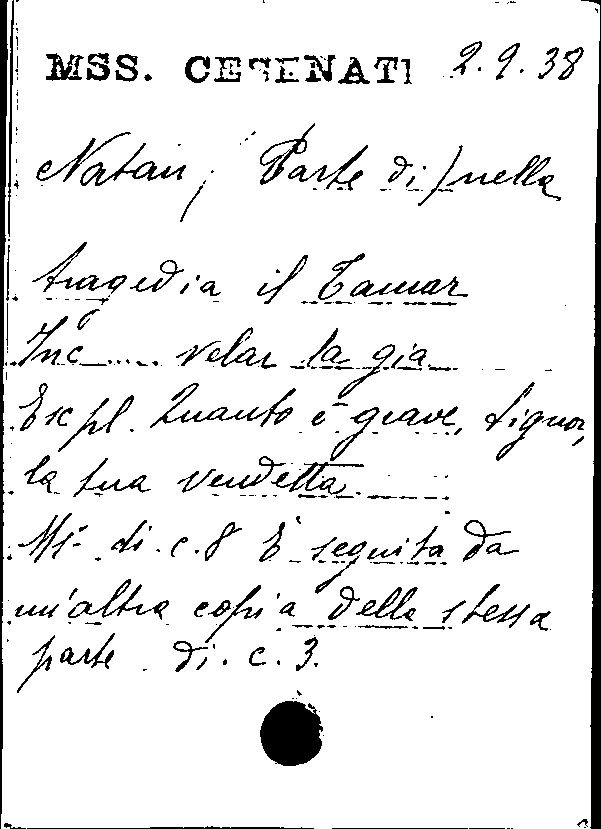 MSS. CESENATI 2.9.38
Natan, Parte di / nella
tragedia il Tamar
Inc ..... velar la già
Expl. Quanto è grave, Signor,
la tua vendetta.
Ms. di c. 8 È seguita da
un'altra copia della stessa
parte di. c. 3.